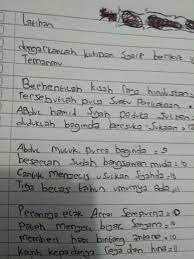 Latihan
dengarkanlah kutipan Syair berikut
Temanmu
Berhentilah kisah raja hindustan
Tersebutlah pula suatu Perkataan
Abdul hamid Syah Paduka Sultan
duduklah baginda bersuka-sukaan
Abdul muluk Putra baginda = 9
besarlah sudah bangsawan muda = 10
Cantik menjelis usulan Syahda
Tiga belas tahun umurnya ada = 11
Parasnya elok Amat Sempurna = 10
Petah menjelis bijak
memberi hati bimbang
kasih kepadanya